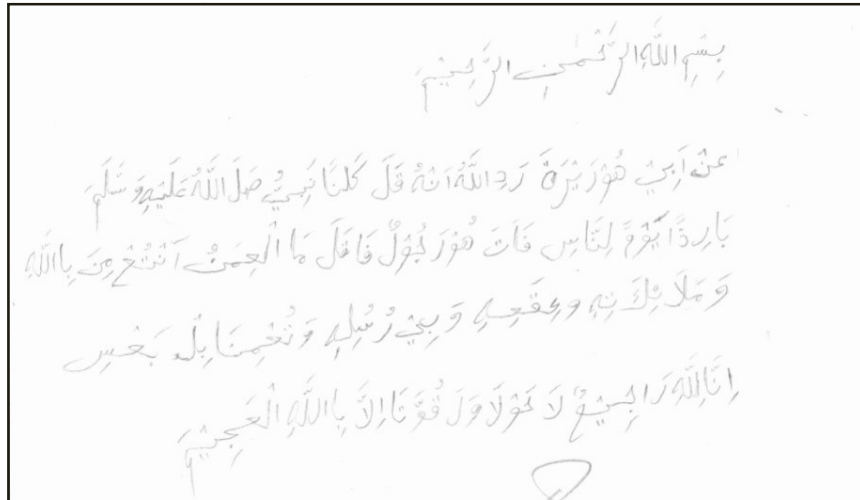 بِسْمِ اللَّهِ الرَّحْمٰنِ الرَّحِيْمِ
عَنْ اَبِيْ هُوْرَيْرَةَ رَدِ اللَّهُ اَنْهُ قَلَ كَلنَا نَبِيُّ صَلَ اللَّهُ عَلَيْهِ وَسَّلَمَ
بَارِدًا يَوْمً لِنَّاسِ فَاتَ هُوْرَجُوْلٌ فَا قَلَ مَا الْعِمَنُ اَنْتُعْ مِنَ بِا اللَّهِ
وَ مَلَا ئِكَ تِهِ وَ بِيْ رُسُلِهِ وَ تُعْمِنَا بِلْ بَعْسِ
اِنَّا لِلَّهِ رَاجِيْعٌ لَا حَوْلَا وَلَ قُوَّتَا اِلَّا بِا اللَّهِ الْعَجِيْمَ